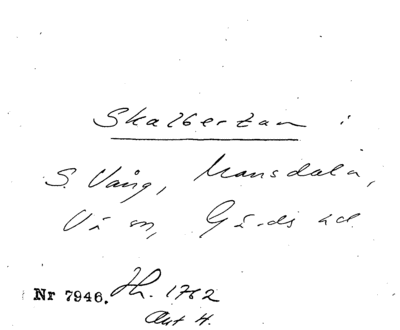 Skalbertan i
S. Vång, Mansdala,
Vå m, Gärds hd
Nr 7946. Hh. 1762
Akt 4.